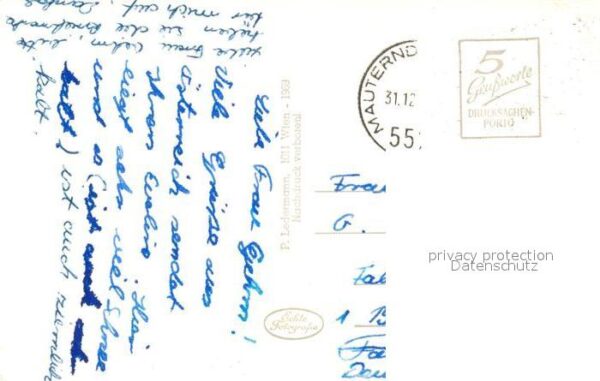 Liebe Frau Gehm!
Viele Grüße aus
Österreich sendet
Ihnen Evelin. Hier
liegt sehr viel Schnee
und es (ist
kalt) ist auch ziemlich
kalt.
Liebe Frau Gehm, bitte
heben Sie die Briefmarke
für mich auf.
P. Ledermann, 1011 Wien - 1969
Nachdruck verboten!
Echte
Fotografie
MAUTERND
31.12
55
5
Grußworte
DRUCKSACHEN-
PORTO
Frau
G.
1 B
privacy protection
Datenschutz